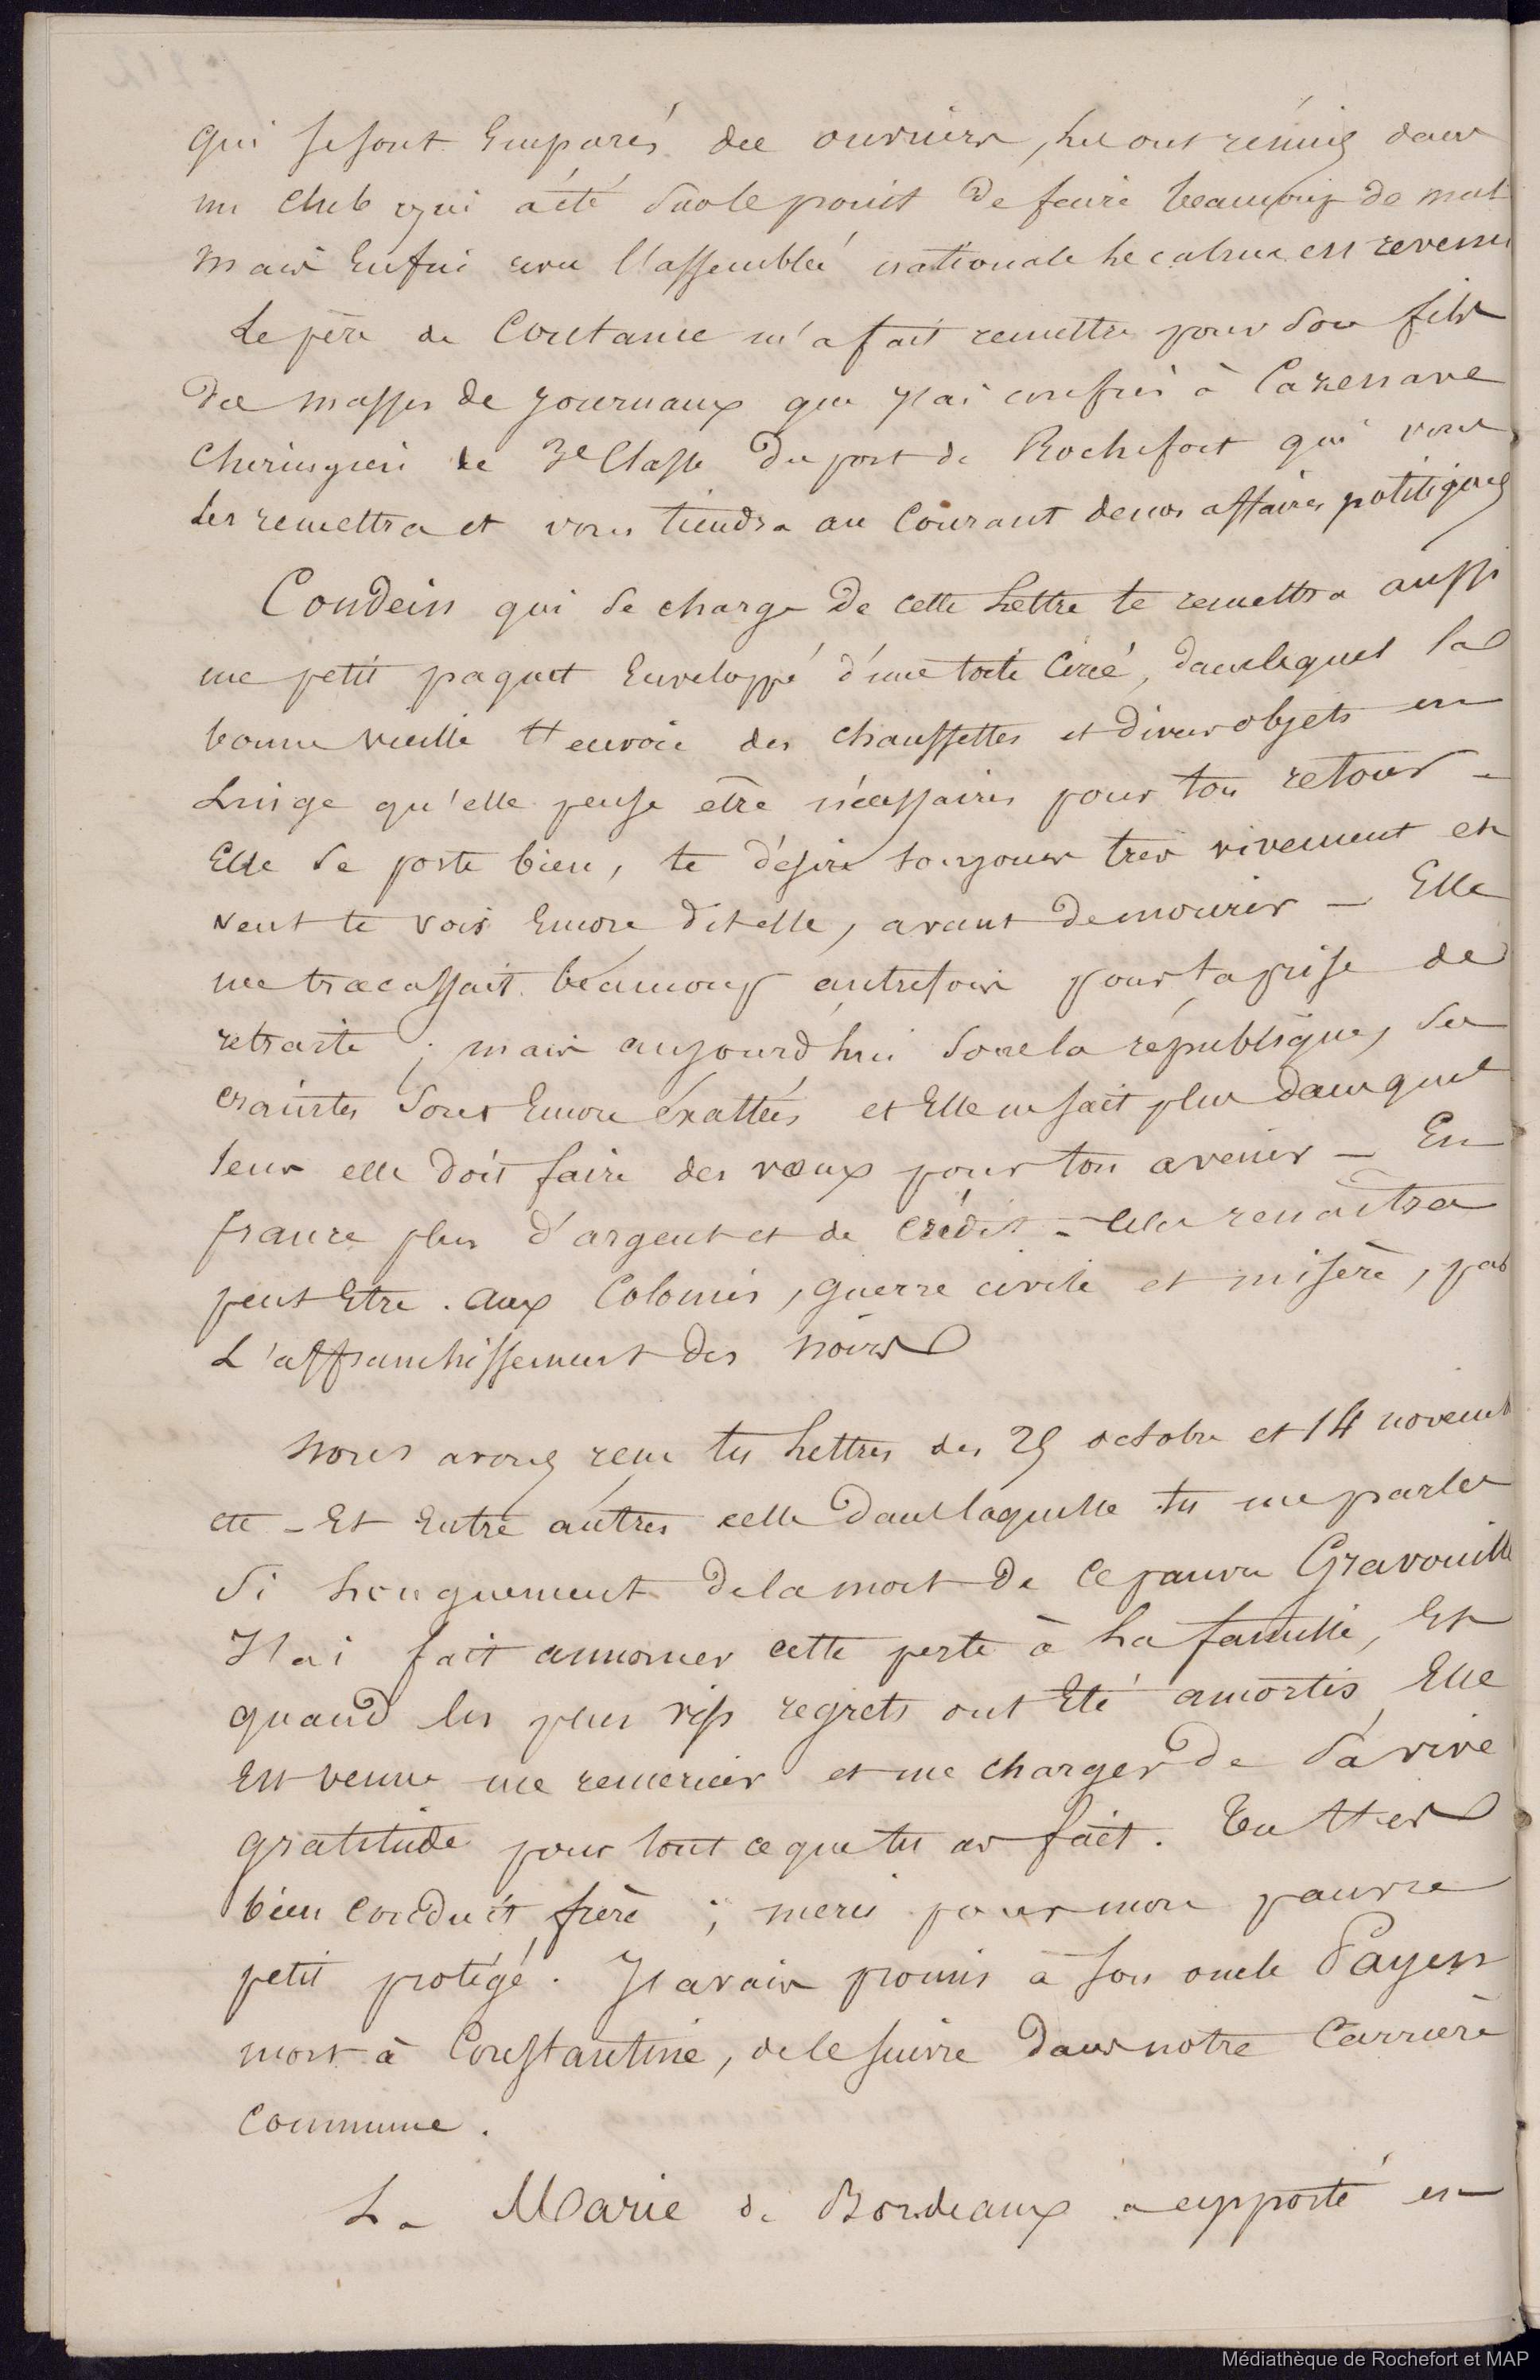 qui se sont Emparés des ouvriers, les ont réunis dans
un Club qui a été sur le point de faire beaucoup de mal
mais Enfin avec l'assemblée nationale le calme est revenu
Le père de Coutance m'a fait remettre pour son fils
des masses de journaux que j'ai confiés à Cazenave
Chirurgien de 3e Classe du port de Rochefort qui vous
les remettra et vous tiendra au Courant de nos affaires politiques
Condein qui se charge de cette Lettre te remettra aussi
un petit paquet Enveloppé d'une toile Cirée, dans lequel la
bonne vieille t'envoie des Chaussettes et divers objets en
Linge qu'elle pense être nécessaires pour ton retour _
Elle se porte bien, te désire toujours très vivement et
veut te voir Encore dit elle, avant de mourir _ Elle
me tracassait beaucoup autrefois pour ta prise de
retraite ; mais aujourd'hui sous la république, ses
craintes sont Encore éxaltées et Elle ne sait plus dans quel
sens elle doit faire des vœux pour ton avenir _ En
france plus d'argent et de Crédit _ Cela renaîtra
peut Etre . aux Colonies, guerre civile et misère, par
L'affranchissement des noirs
Nous avons reçu tes Lettres des 29 octobre et 14 novemb
etc _ Et Entre autres celle dans laquelle tu me parles
si Longuement de la mort de Ce pauvre Gravouille
J'ai fait annoncer cette perte à La famille, Et
quand les plus vifs regrets ont Eté amortis, Elle
Est venue me remercier et me charger de Sa vive
gratitude pour tout ce que tu as fait. Tu t'es
bien Conduit, frère ; merci pour mon pauvre
petit protégé. J'avais promis à son oncle Payen
mort à Constantine, de le suivre dans notre Carrière
Commune.
La Marie de Bordeaux a apporté en
Médiathèque de Rochefort et MAP